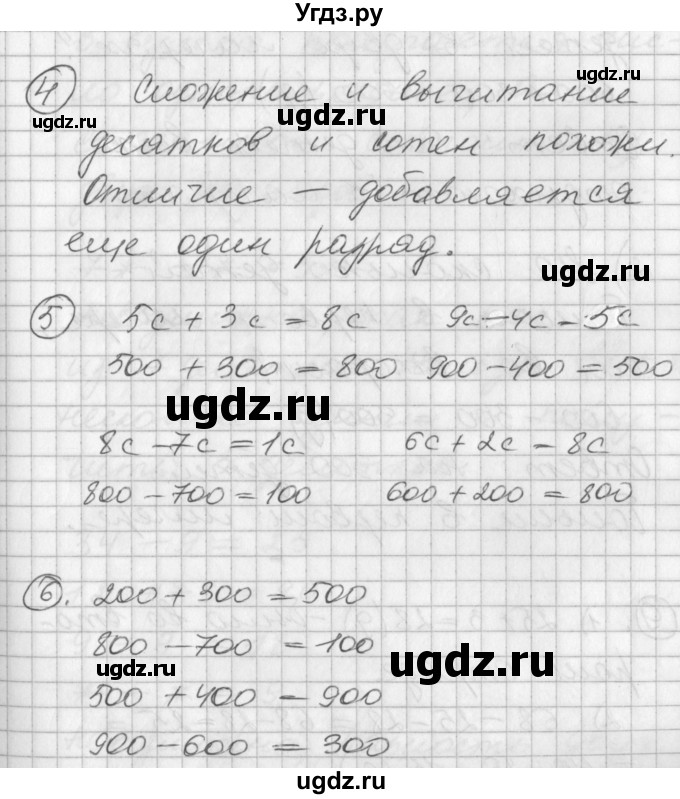 Угдз.ру
④ Сложение и вычитание
ugdz.ru ugdz.ru ugdz.ru
десятков и сотен похожи.
Отличие — добавляется
еще один разряд.
ugdz.ru
⑤ 5с + 3с = 8с 9с – 4с – 5с
500 + 300 = 800 900 – 400 = 500
ugdz.ru
8с – 7с = 1с 6с + 2с – 8с
800 – 700 = 100 600 + 200 = 800
⑥. 200 + 300 = 500
800 – 700 = 100
ugdz.ru ugdz.ru
500 + 400 = 900
900 – 600 = 300
ugdz.ru